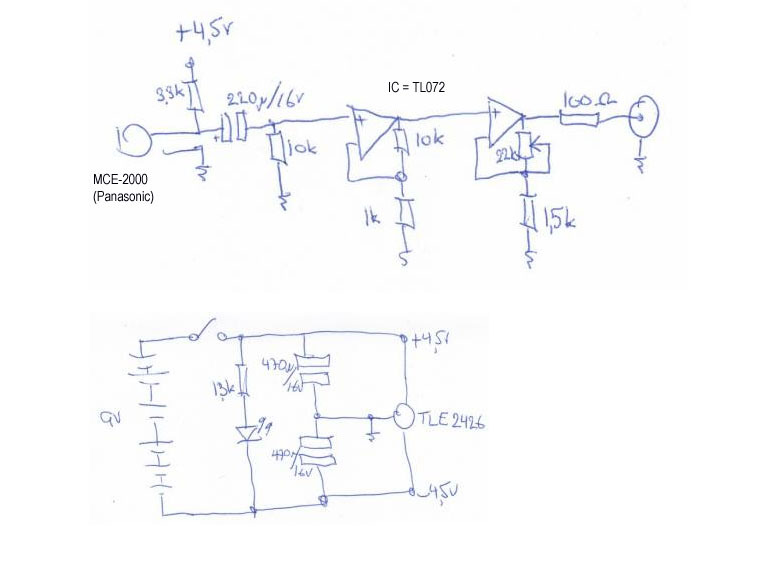 +4,5v
3,3k
220µ/16v
+
10k
MCE-2000
(Panasonic)
IC = TL072
+
10k
1k
+
22k
1,5k
100Ω
9V
1,3k
470µ/
16V
470µ/
16V
+4,5V
TLE2426
-4,5V